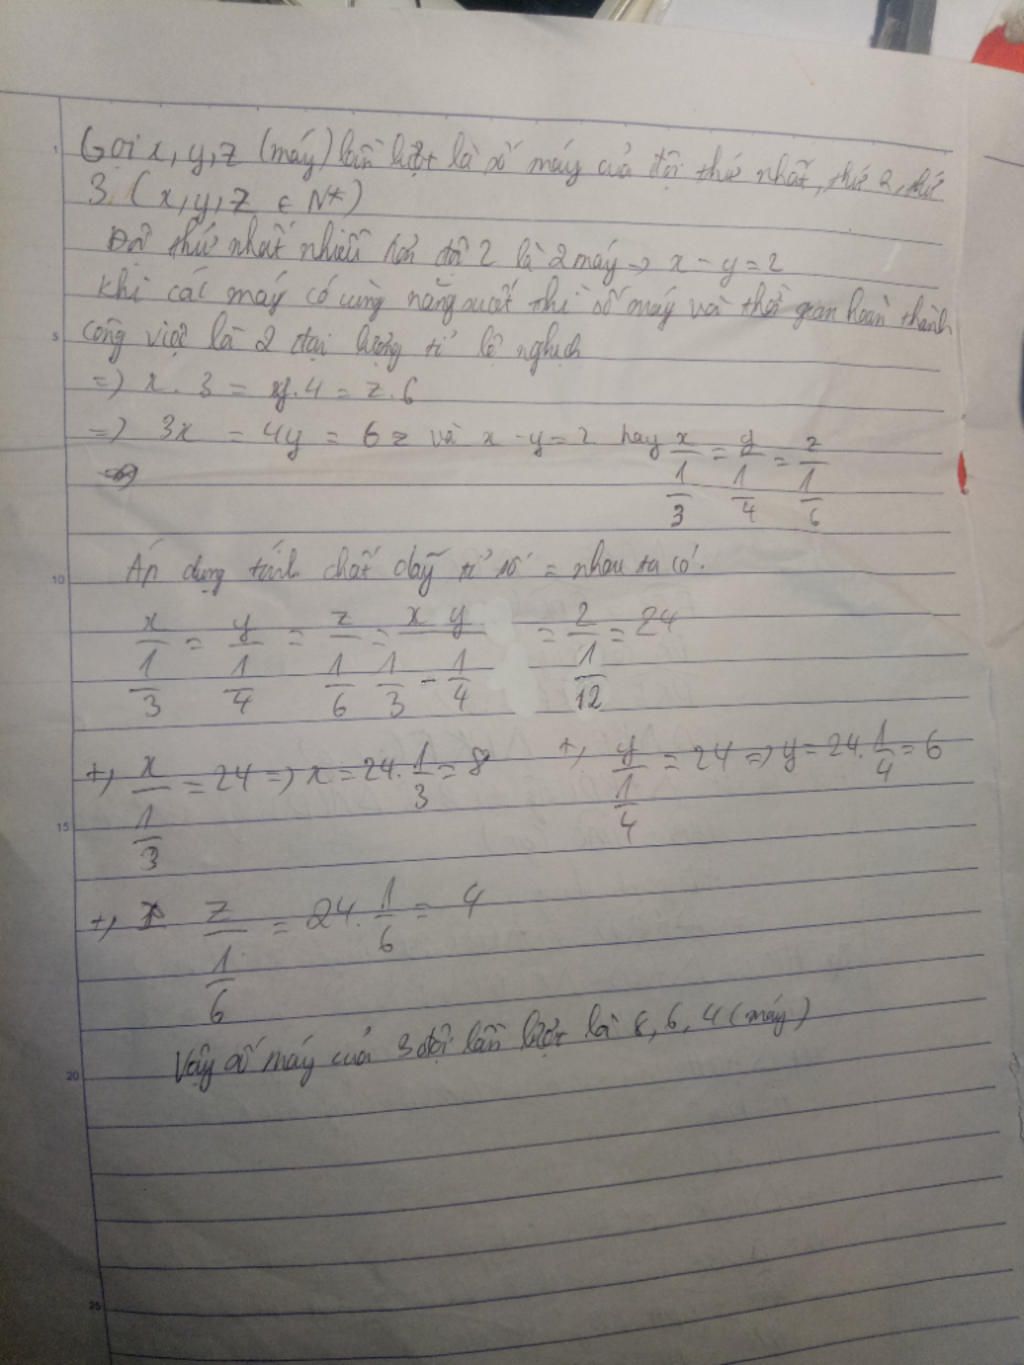 Gọi x, y, z (máy) lần lượt là số máy của đội thứ nhất, thứ 2, thứ
3. (x, y, z ∈ N*)
Đội thứ nhất nhiều hơn đội 2 là 2 máy => x - y = 2
Khi các máy có cùng năng suất thì số máy và thời gian hoàn thành
công việc là 2 đại lượng tỉ lệ nghịch
=> x . 3 = y . 4 = z . 6
=> 3x = 4y = 6z và x - y = 2 hay x/(1/3) = y/(1/4) = z/(1/6)
Áp dụng tính chất dãy tỉ số = nhau ta có:
x/(1/3) = y/(1/4) = z/(1/6) = (x y)/(1/3 - 1/4) = 2/(1/12) = 24
+, x/(1/3) = 24 => x = 24 . 1/3 = 8 +, y/(1/4) = 24 => y = 24 . 1/4 = 6
+, z/(1/6) = 24 . 1/6 = 4
Vậy số máy của 3 đội lần lượt là 8, 6, 4 (máy)
1
5
10
15
20
25